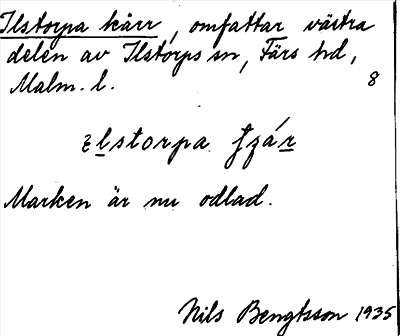 Ilstorpa kärr, omfattar västra
delen av Ilstorps sn, Färs hd,
Malm. l. 8
Marken är nu odlad.
Nils Bengtsson 1935